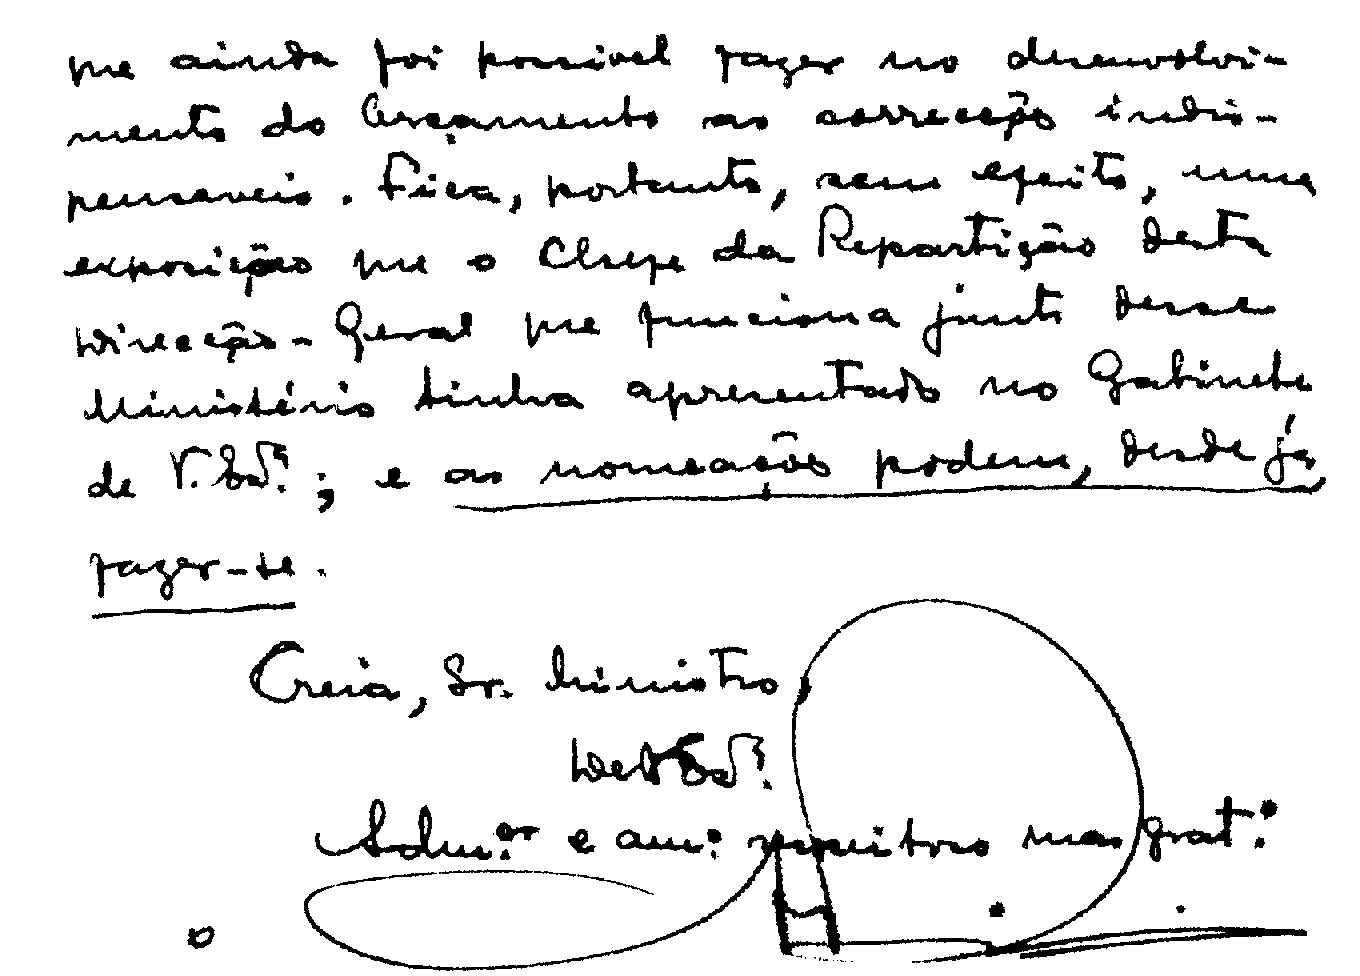 que ainda foi possivel fazer no desenvolvi-
mento do Orçamento as correcções indis-
pensaveis. Fica, portanto, sem efeito, uma
exposição que o Chefe da Repartição desta
Direcção-Geral que funciona junto desse
Ministério tinha apresentado no Gabinete
de V. Exª.; e as nomeações podem, desde já,
fazer-se.
Creia, Sr. Ministro,
De V. Exª.
Admor. e amº. muito mas gratº.